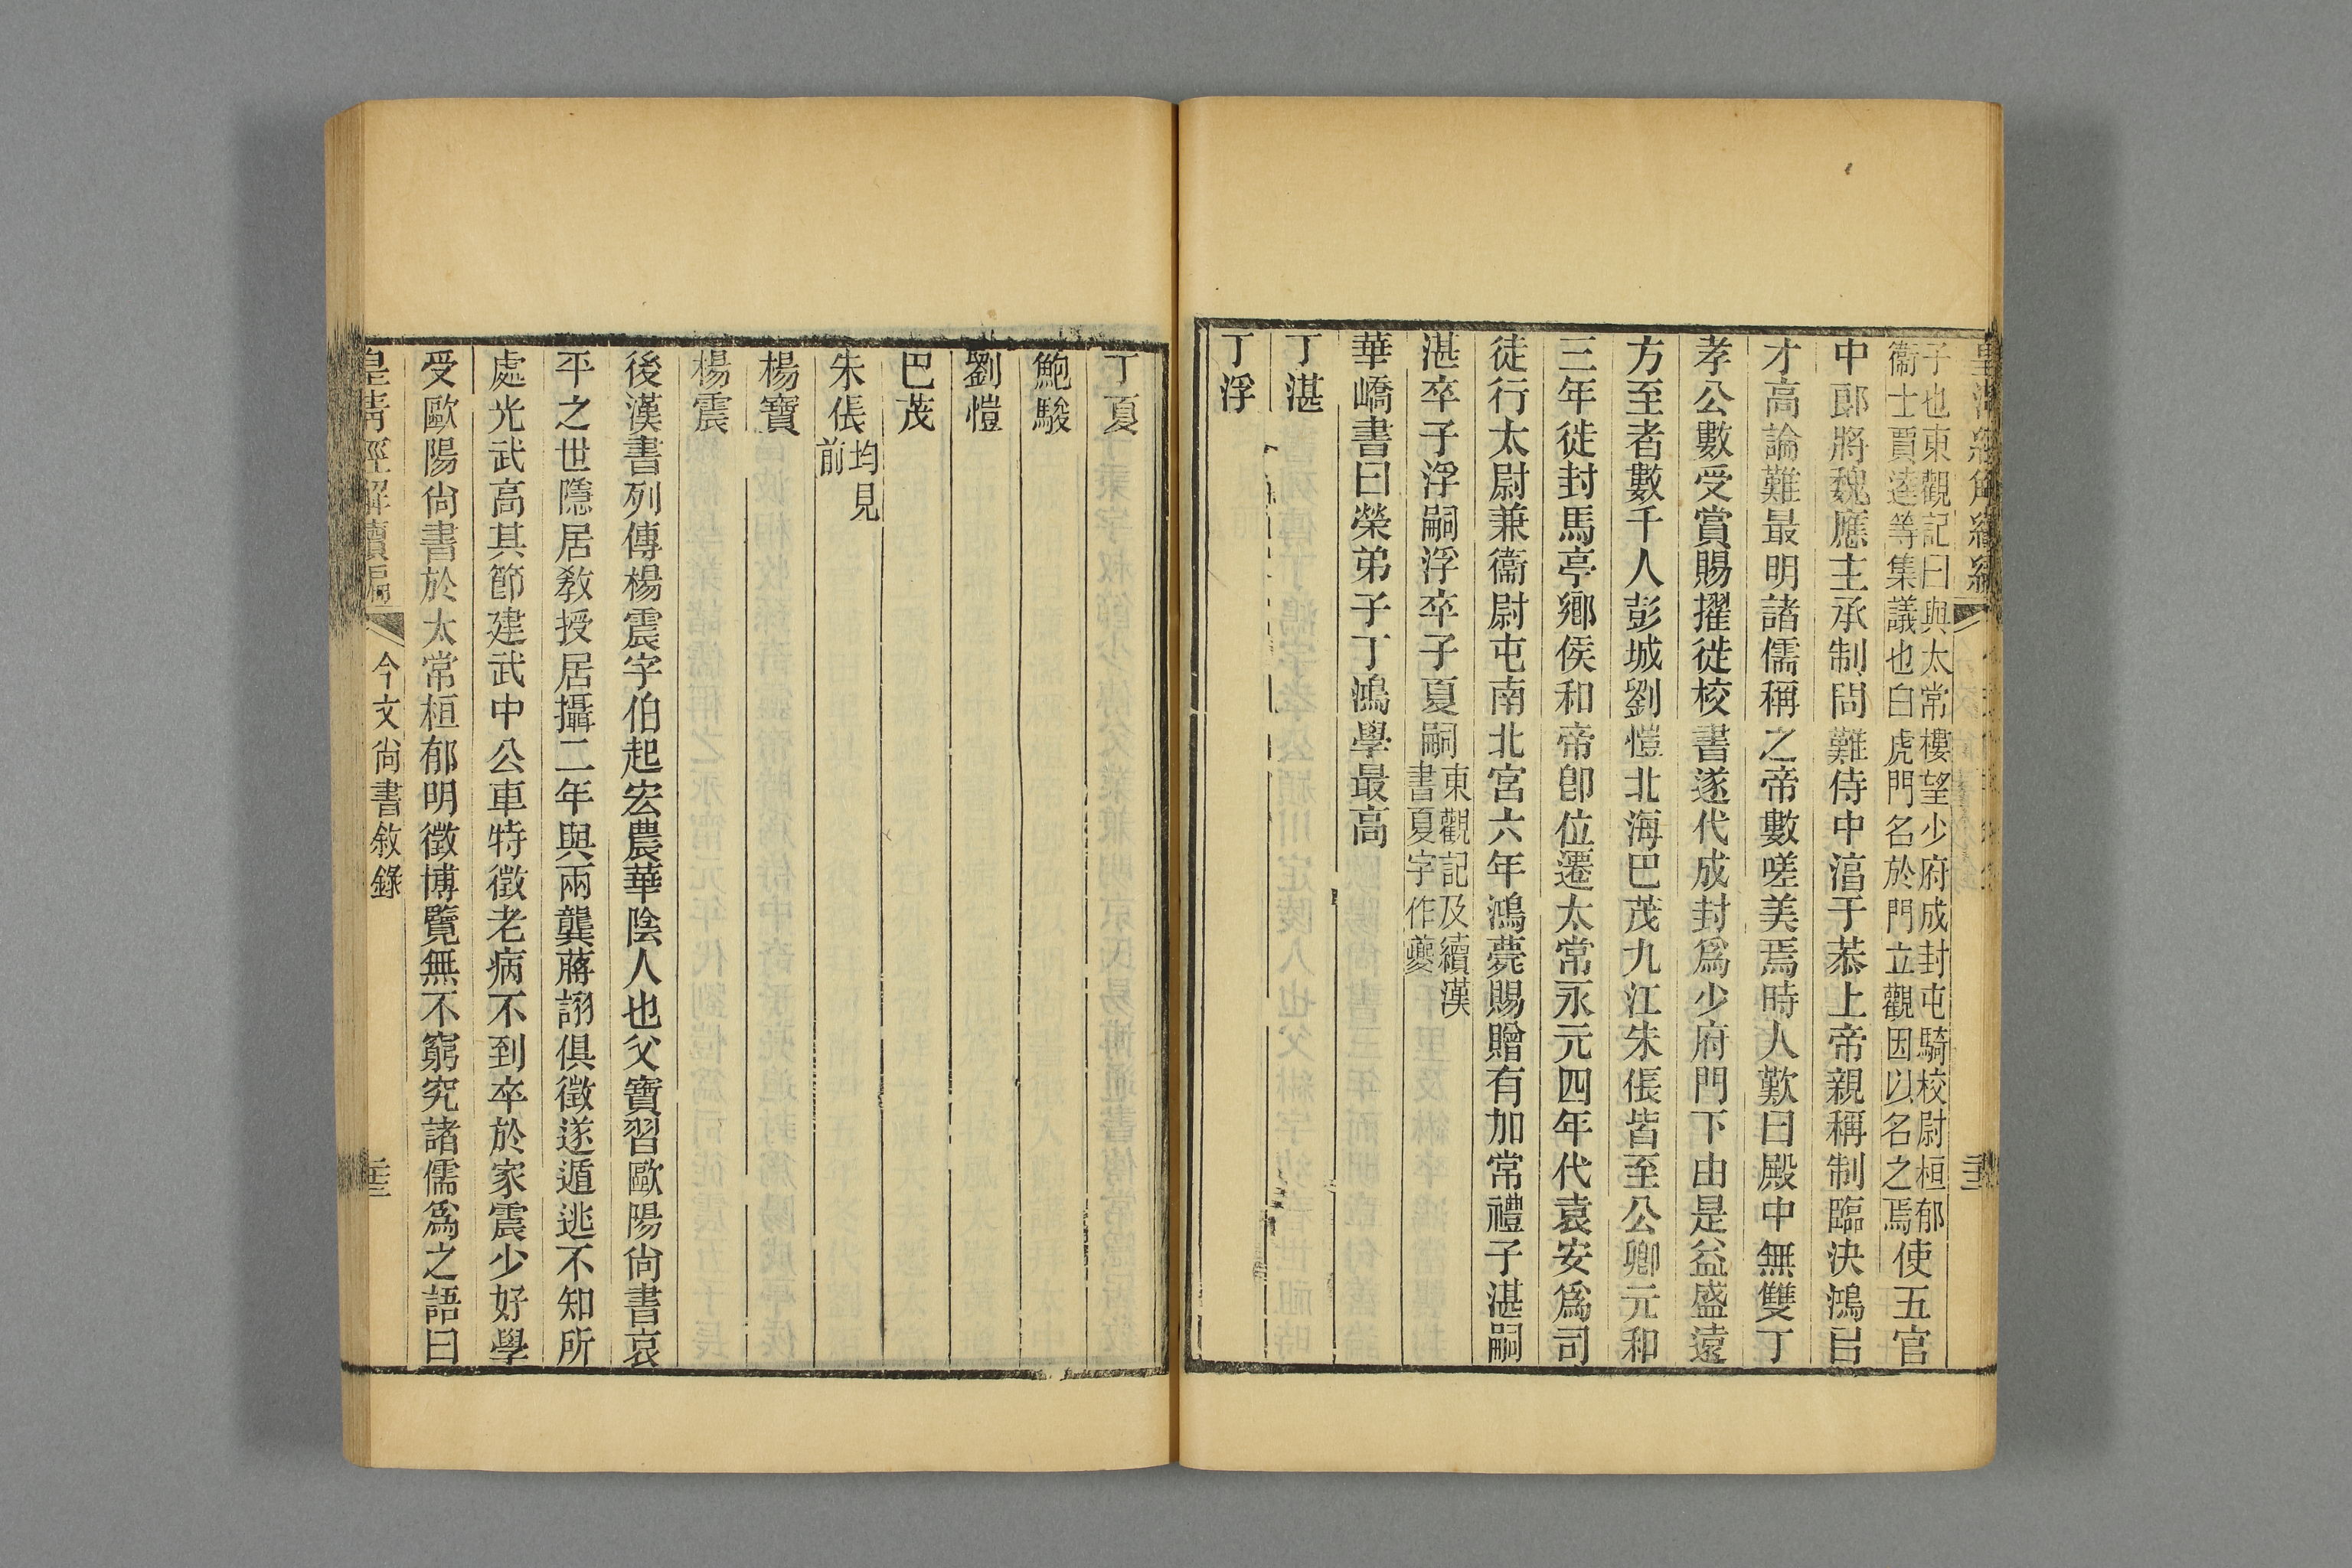 子也東觀記曰與太常樓望少府成封屯騎校尉桓郁
衞士賈逵等集議也白虎門名於門立觀因以名之焉使五官
中郞將魏應主承制問難侍中淳于恭上帝親稱制臨決鴻㠯
才高論難最明諸儒稱之帝數嗟美焉時人歎曰殿中無雙丁
孝公數受賞賜擢徙校書遂代成封爲少府門下由是益盛遠
方至者數千人彭城劉愷北海巴茂九江朱倀皆至公卿元和
三年徙封馬亭鄕侯和帝卽位遷太常永元四年代袁安爲司
徒行太尉兼衞尉屯南北宮六年鴻薨賜贈有加常禮子湛嗣
湛卒子浮嗣浮卒子夏嗣東觀記及續漢
書夏字作夔
華嶠書曰榮弟子丁鴻學最高
丁湛
丁浮
丁夏
鮑駿
劉愷
巴茂
朱倀均見
前
楊寶
楊震
後漢書列傳楊震字伯起宏農華陰人也父寶習歐陽尙書哀
平之世隱居敎授居攝二年與兩龔蔣詡俱徵遂遁逃不知所
處光武高其節建武中公車特徵老病不到卒於家震少好學
受歐陽尙書於太常桓郁明徵博覽無不窮究諸儒爲之語曰
皇淸經解續編
今文尙書敘錄